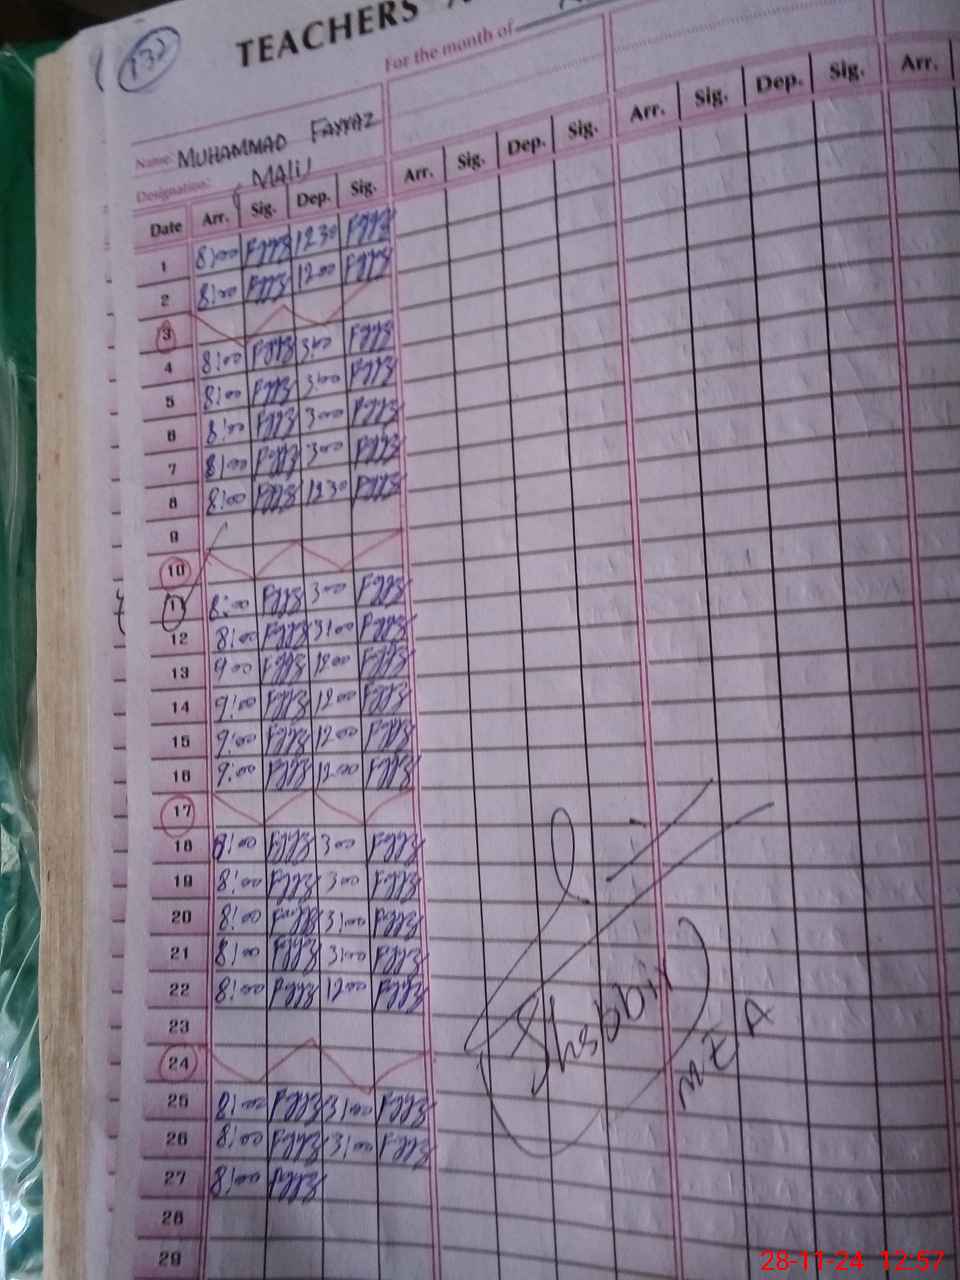 132
TEACHERS
For the month of
Name: MUHAMMAD FAYYAZ
Designation: MALI
Arr. Sig. Dep. Sig. Arr. Sig. Dep. Sig. Arr.
Date Arr. Sig. Dep. Sig.
1 8:00 Fyyz 12 30 Fyyz
2 8:00 Fyyz 12 00 Fyyz
3
4 8:00 Fyyz 3:00 Fyyz
5 8:00 Fyyz 3:00 Fyyz
6 8:00 Fyyz 3:00 Fyyz
7 8:00 Fyyz 3:00 Fyyz
8 8:00 Fyyz 12 30 Fyyz
9
10
11 8:00 Fyyz 3:00 Fyyz
12 8:00 Fyyz 3:00 Fyyz
13 9:00 Fyyz 12 00 Fyyz
14 9:00 Fyyz 12 00 Fyyz
15 9:00 Fyyz 12 00 Fyyz
16 9:00 Fyyz 12 00 Fyyz
17
18 8:00 Fyyz 3:00 Fyyz
19 8:00 Fyyz 3:00 Fyyz
20 8:00 Fyyz 3:00 Fyyz
21 8:00 Fyyz 3:00 Fyyz
22 8:00 Fyyz 12 00 Fyyz
23
24
25 8:00 Fyyz 3:00 Fyyz
26 8:00 Fyyz 3:00 Fyyz
27 8:00 Fyyz
28
29
Shabbir
MEA
28-11-24 12:57